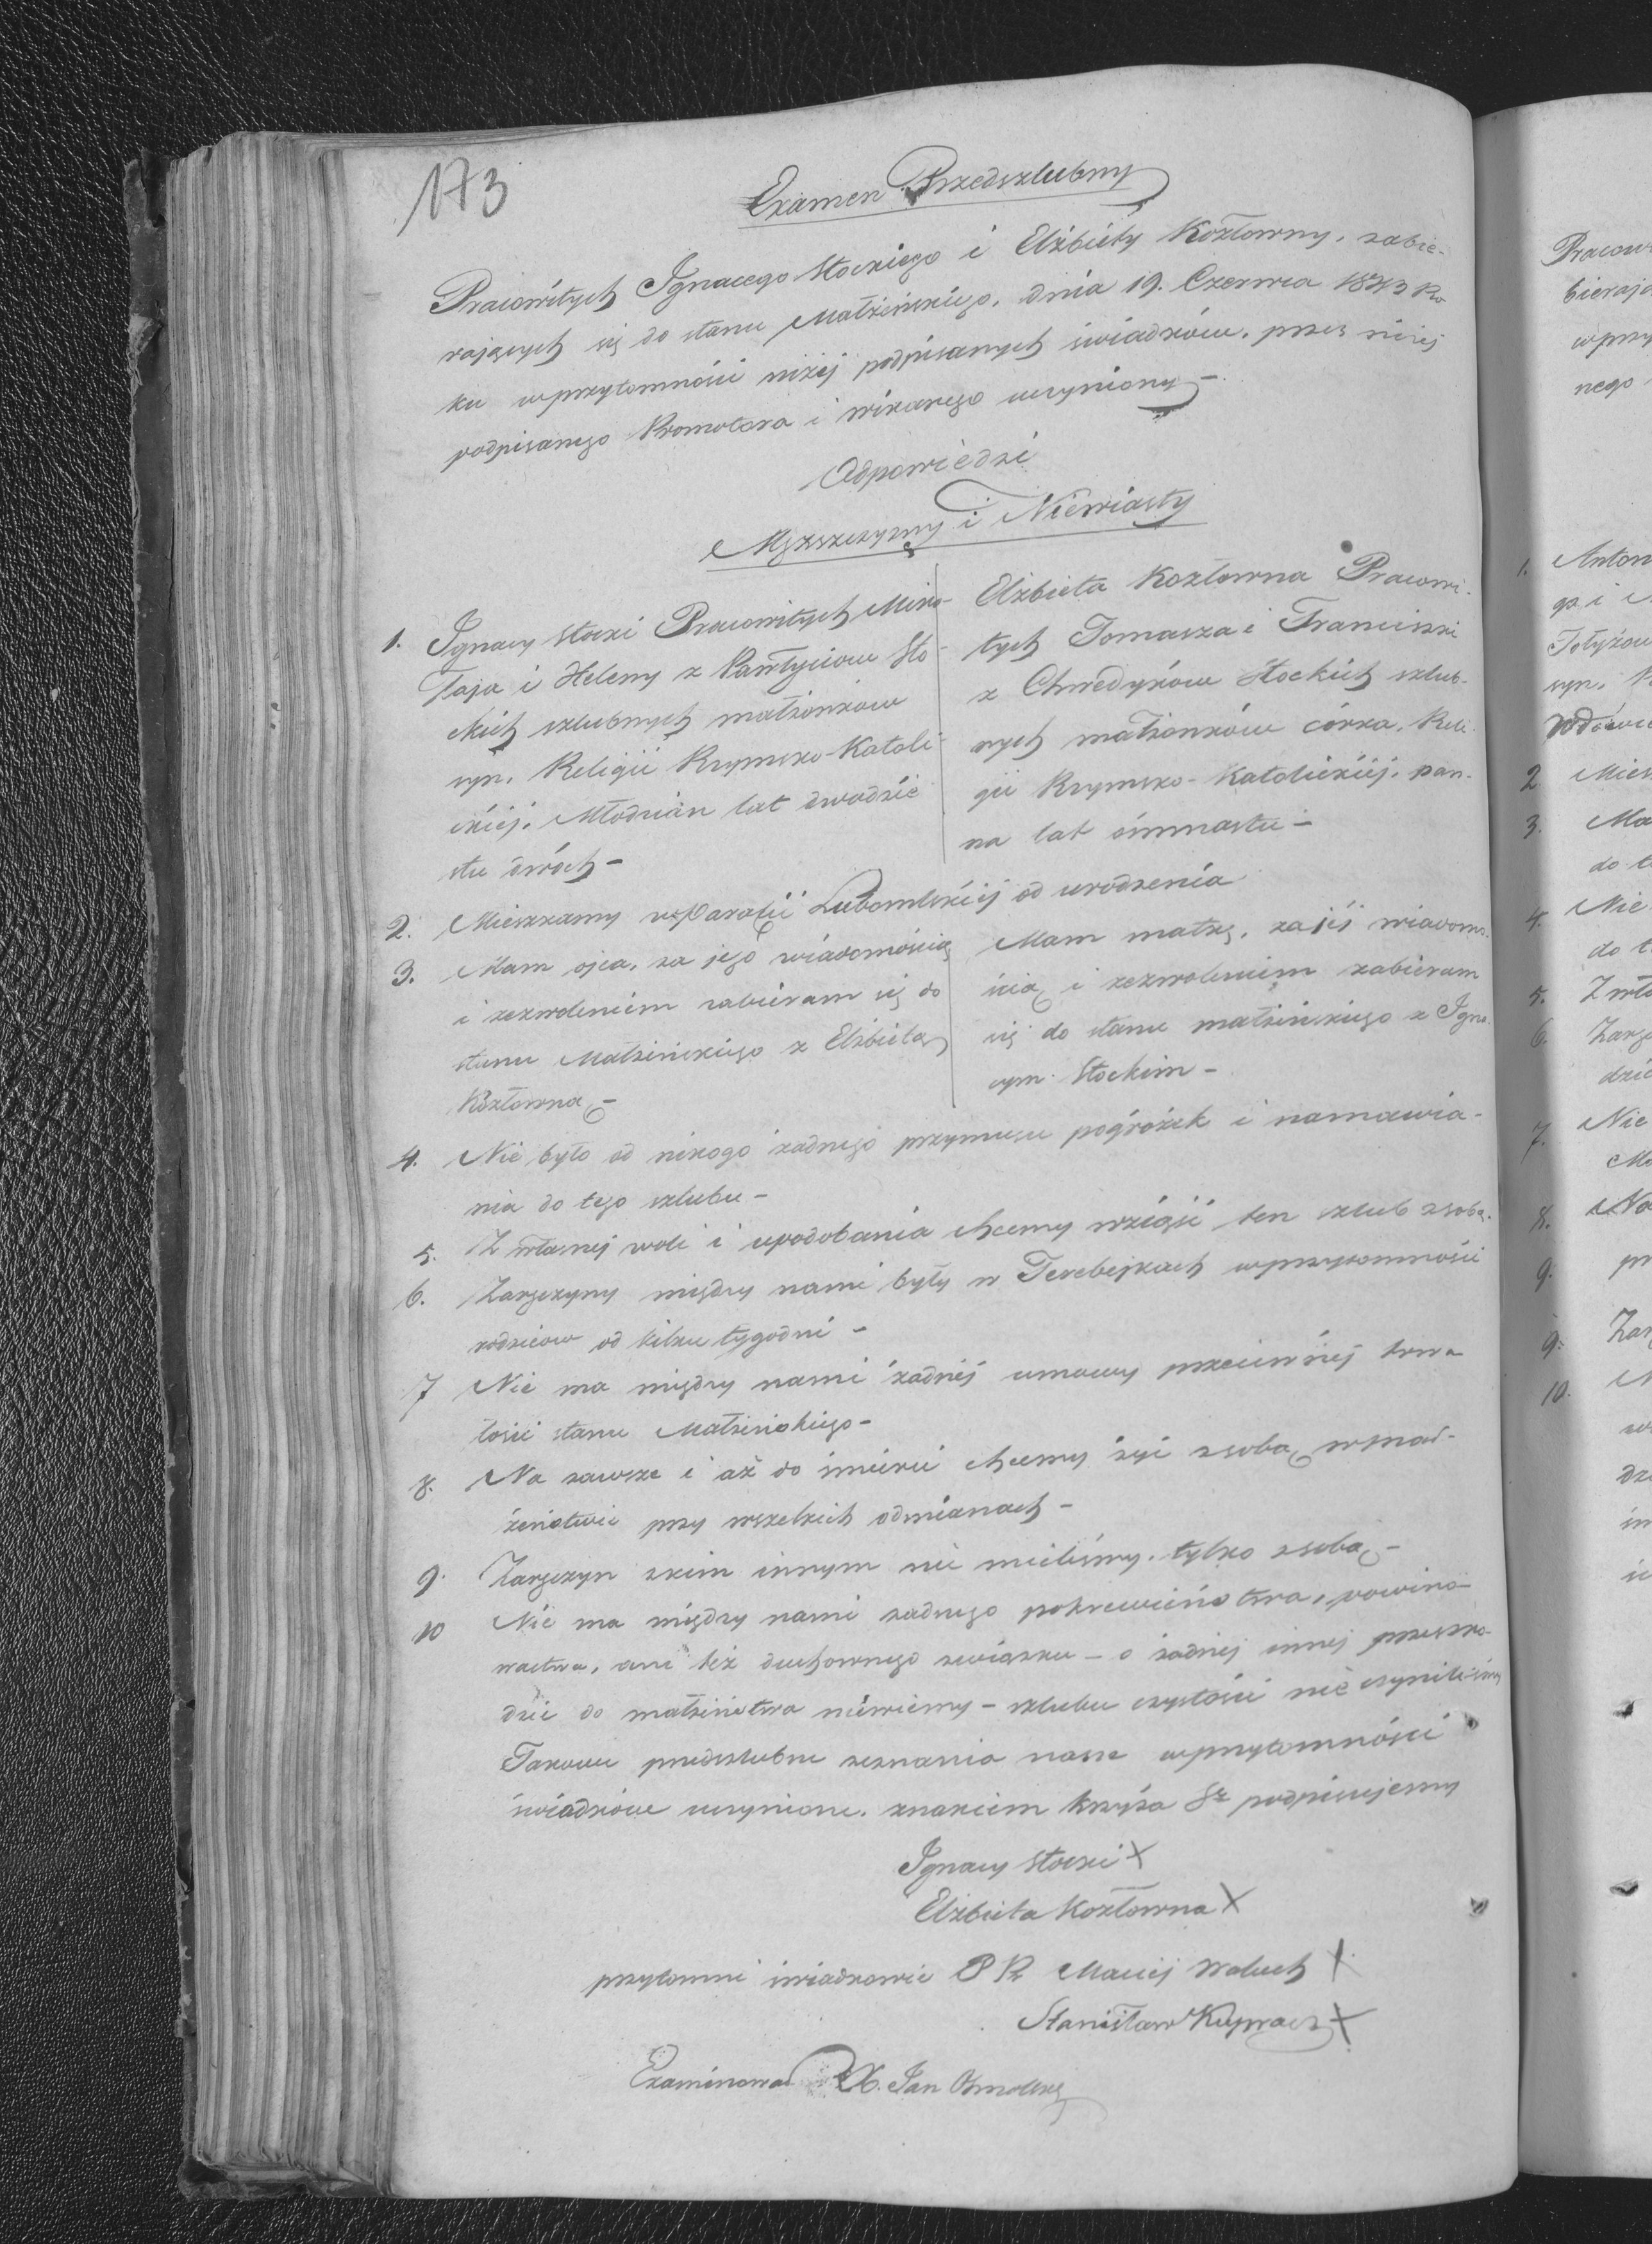 173
Examen Przedszlubny
Pracowitych Ignacego Stockiego i Elżbiety Kozłowny, zabie-
rających się do stanu Małżeńskiego, dnia 19. Czerwca 1843 Ro
ku w przytomności niżéj podpisanych świadków, przez niżéj
podpisanego Promotora i wikarego uczyniony –
Odpowiedzi
Męzszczyzny i Niewiasty
1. Ignacy Stocki Pracowitych Miko-
łaja i Heleny z Sto-
ckich szlubnych małżonków
syn. Religii Rzymsko-Katoli-
ckiéj. Młodzian lat dwadzie
stu dwóch –
Elżbieta Kozłowna Pracowi-
tych Tomasza i Franciszki
z Chwedyków Stockich szlub-
nych małżonków córka. Reli-
gii Rzymsko-Katolickiéj, pan-
na lat ośmnastu –
2. Mieszkamy w Parafii Lubomlskiéj od urodzenia
3. Mam ojca, za jego wiadomością
i zezwoleniem zabieram się do
stanu Małżeńskiego z Elżbietą
Kozłowną –
Mam matkę, za jéj wiadomo-
ścią i zezwoleniem zabieram
się do stanu małżeńskiego z Igna-
cym Stockim –
4. Nie było od nikogo żadnego przymusu pogróżek i namawia-
nia do tego szlubu –
5. Z własnéj woli i upodobania chcemy wziąść ten szlub z sobą.
6. Zaręczyny między nami były w Terebejkach w przytomności
rodziców od kilku tygodni –
7 Nie ma między nami żadnéj umowy przeciwnéj trwa
łości stanu Małżeńskiego –
8. Na zawsze i aż do śmierci chcemy żyć z sobą w mał-
żeństwie przy wszelkich odmianach –
9. Zaręczyn z kim innym nie mieliśmy, tylko z sobą –
10 Nie ma między nami żadnego pokrewieństwa, powino-
wactwa, ani też duchownego związku – o żadnéj innéj przeszko-
dzie do małżeństwa niewiemy – szlubu czystości nie czyniliśmy
Takowe przedszlubne zeznania nasze w przytomności
świadków uczynione, znakiem krzyża Sgo podpisujemy
Ignacy Stocki X
Elżbieta Kozłowna X
przytomni świadkowie Maciéj Waluch X
Stanisław X
Examinował X. Jan